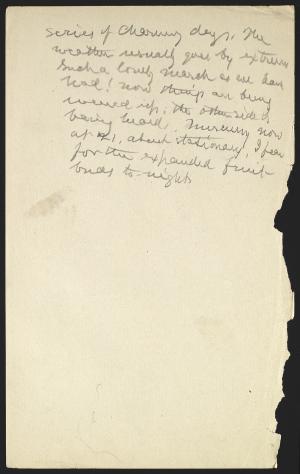 series of charming days. The
weather usually goes by extremes
Such a lovely March as we have
had! Now things are being
evened up; the other side is
being heard. Mercury now
at 21, about stationary, I fear
for the expanded fruit
buds to-night